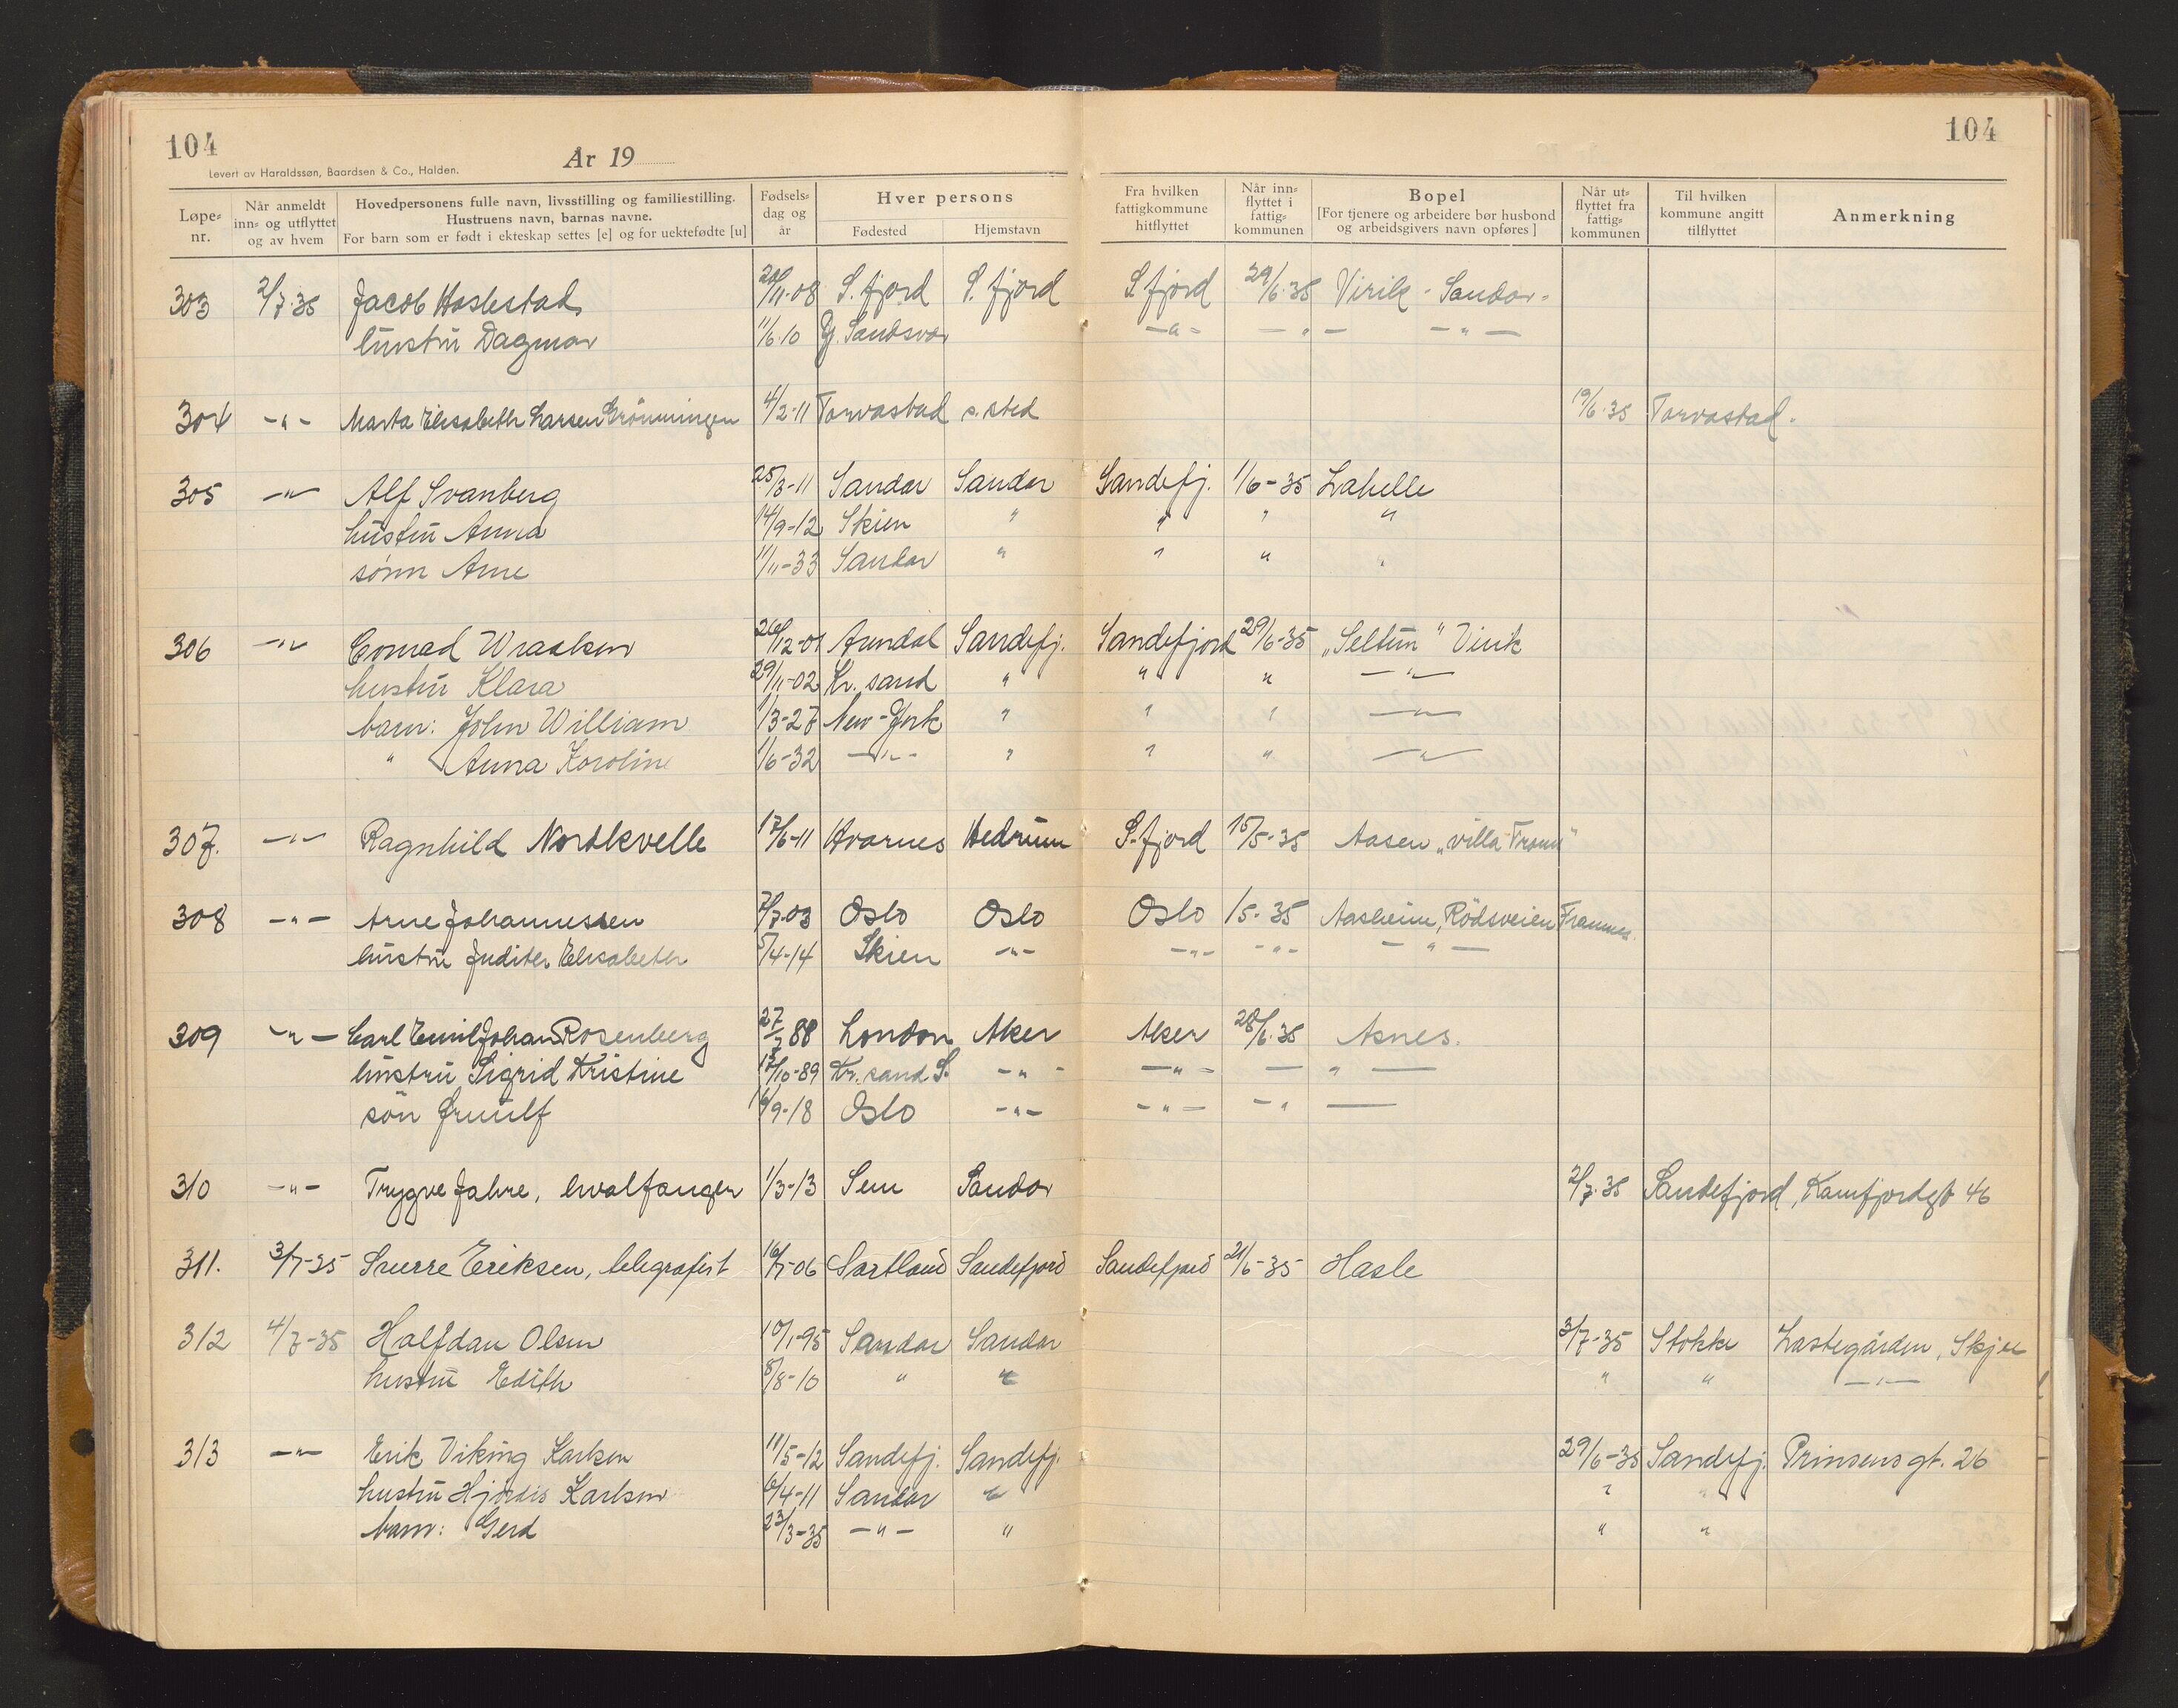 104
År 19
104
Levert av Haraldssøn, Baardsen & Co., Halden.
Løpe-nr. Når anmeldt inn- og utflyttet og av hvem Hovedpersonens fulle navn, livsstilling og familiestilling. Hustruens navn, barnas navne. For barn som er født i ekteskap settes [e] og for uektefødte [u] Fødsels-dag og år Hver persons Fødested Hjemstavn Fra hvilken fattigkommune hitflyttet Når inn-flyttet i fattig-kommunen Bopel [For tjenere og arbeidere bør husbond og arbeidsgivers navn opføres] Når ut-flyttet fra fattig-kommunen Til hvilken kommune angitt tilflyttet Anmerkning
303 2/7-35 Jacob Haslestad 20/11-08 S. fjord S. fjord S. fjord 29/6-35 Virik - Sandar -
hustru Dagmar 11/6-10 Y. Sandsvær -"- -"- -"-
304 -"- Marta Elisabeth Larsen Grönningen 4/2-11 Torvastad s. sted 19/6-35 Torvastad.
305 -"- Alf Svanberg 25/3-11 Sandar Sandar Sandefj. 1/6-35 Lahelle
hustru Anna 14/9-12 Skien " " " "
sønn Arne 11/11-33 Sandar " " " "
306 -"- Conrad Wraalsen 26/12-01 Arendal Sandefj. Sandefjord 29/6-35 „Seltun" Virik
hustru Klara 29/11-02 Kr. sand " " " -"-
barn: John William 1/3-27 New-York " " " -"-
" Anna Karoline 1/6-32 -"- " " " -"-
307. -"- Ragnhild Nordkvelle 17/6-11 Hvarnes Hedrum S. fjord 15/5-35 Aasen „villa Fram"
308 -"- Arne Johannessen 7/7-03 Oslo Oslo Oslo 1/5-35 Aasheim, Rödsveien Framnes.
hustru Judith Elisabeth 5/4-14 Skien -"- -"- -"- -"-
309 -"- Carl Emil Johan Rosenberg 27/7 88 London Aker Aker 28/6-35 Asnes.
hustru Sigrid Kristine 15/10-89 Kr. sand S. -"- -"- -"-
sön Ørnulf 16/9-18 Oslo -"- -"- -"-
310 -"- Trygve Jahre, hvalfanger 1/3-13 Sem Sandar 2/7-35 Sandefjord, Kamfjordgt 46
311. 3/7-35 Sverre Eriksen, telegrafist 16/7-06 Sortland Sandefjord Sandefjord 21/6-35 Hasle
312 4/7-35 Halfdan Olsen 10/1-95 Sandar Sandar 3/7-35 Stokke Lastegården, Skjee
hustru Edith 8/8-10 " " " " -"-
313 -"- Erik Viking Karlsen 11/5-12 Sandefj. Sandefj. 29/6-35 Sandefj. Prinsens gt. 26
hustru Hjördis Karlsen 6/4-11 Sandar " " "
barn: Gerd 23/3-35 -"- " " "